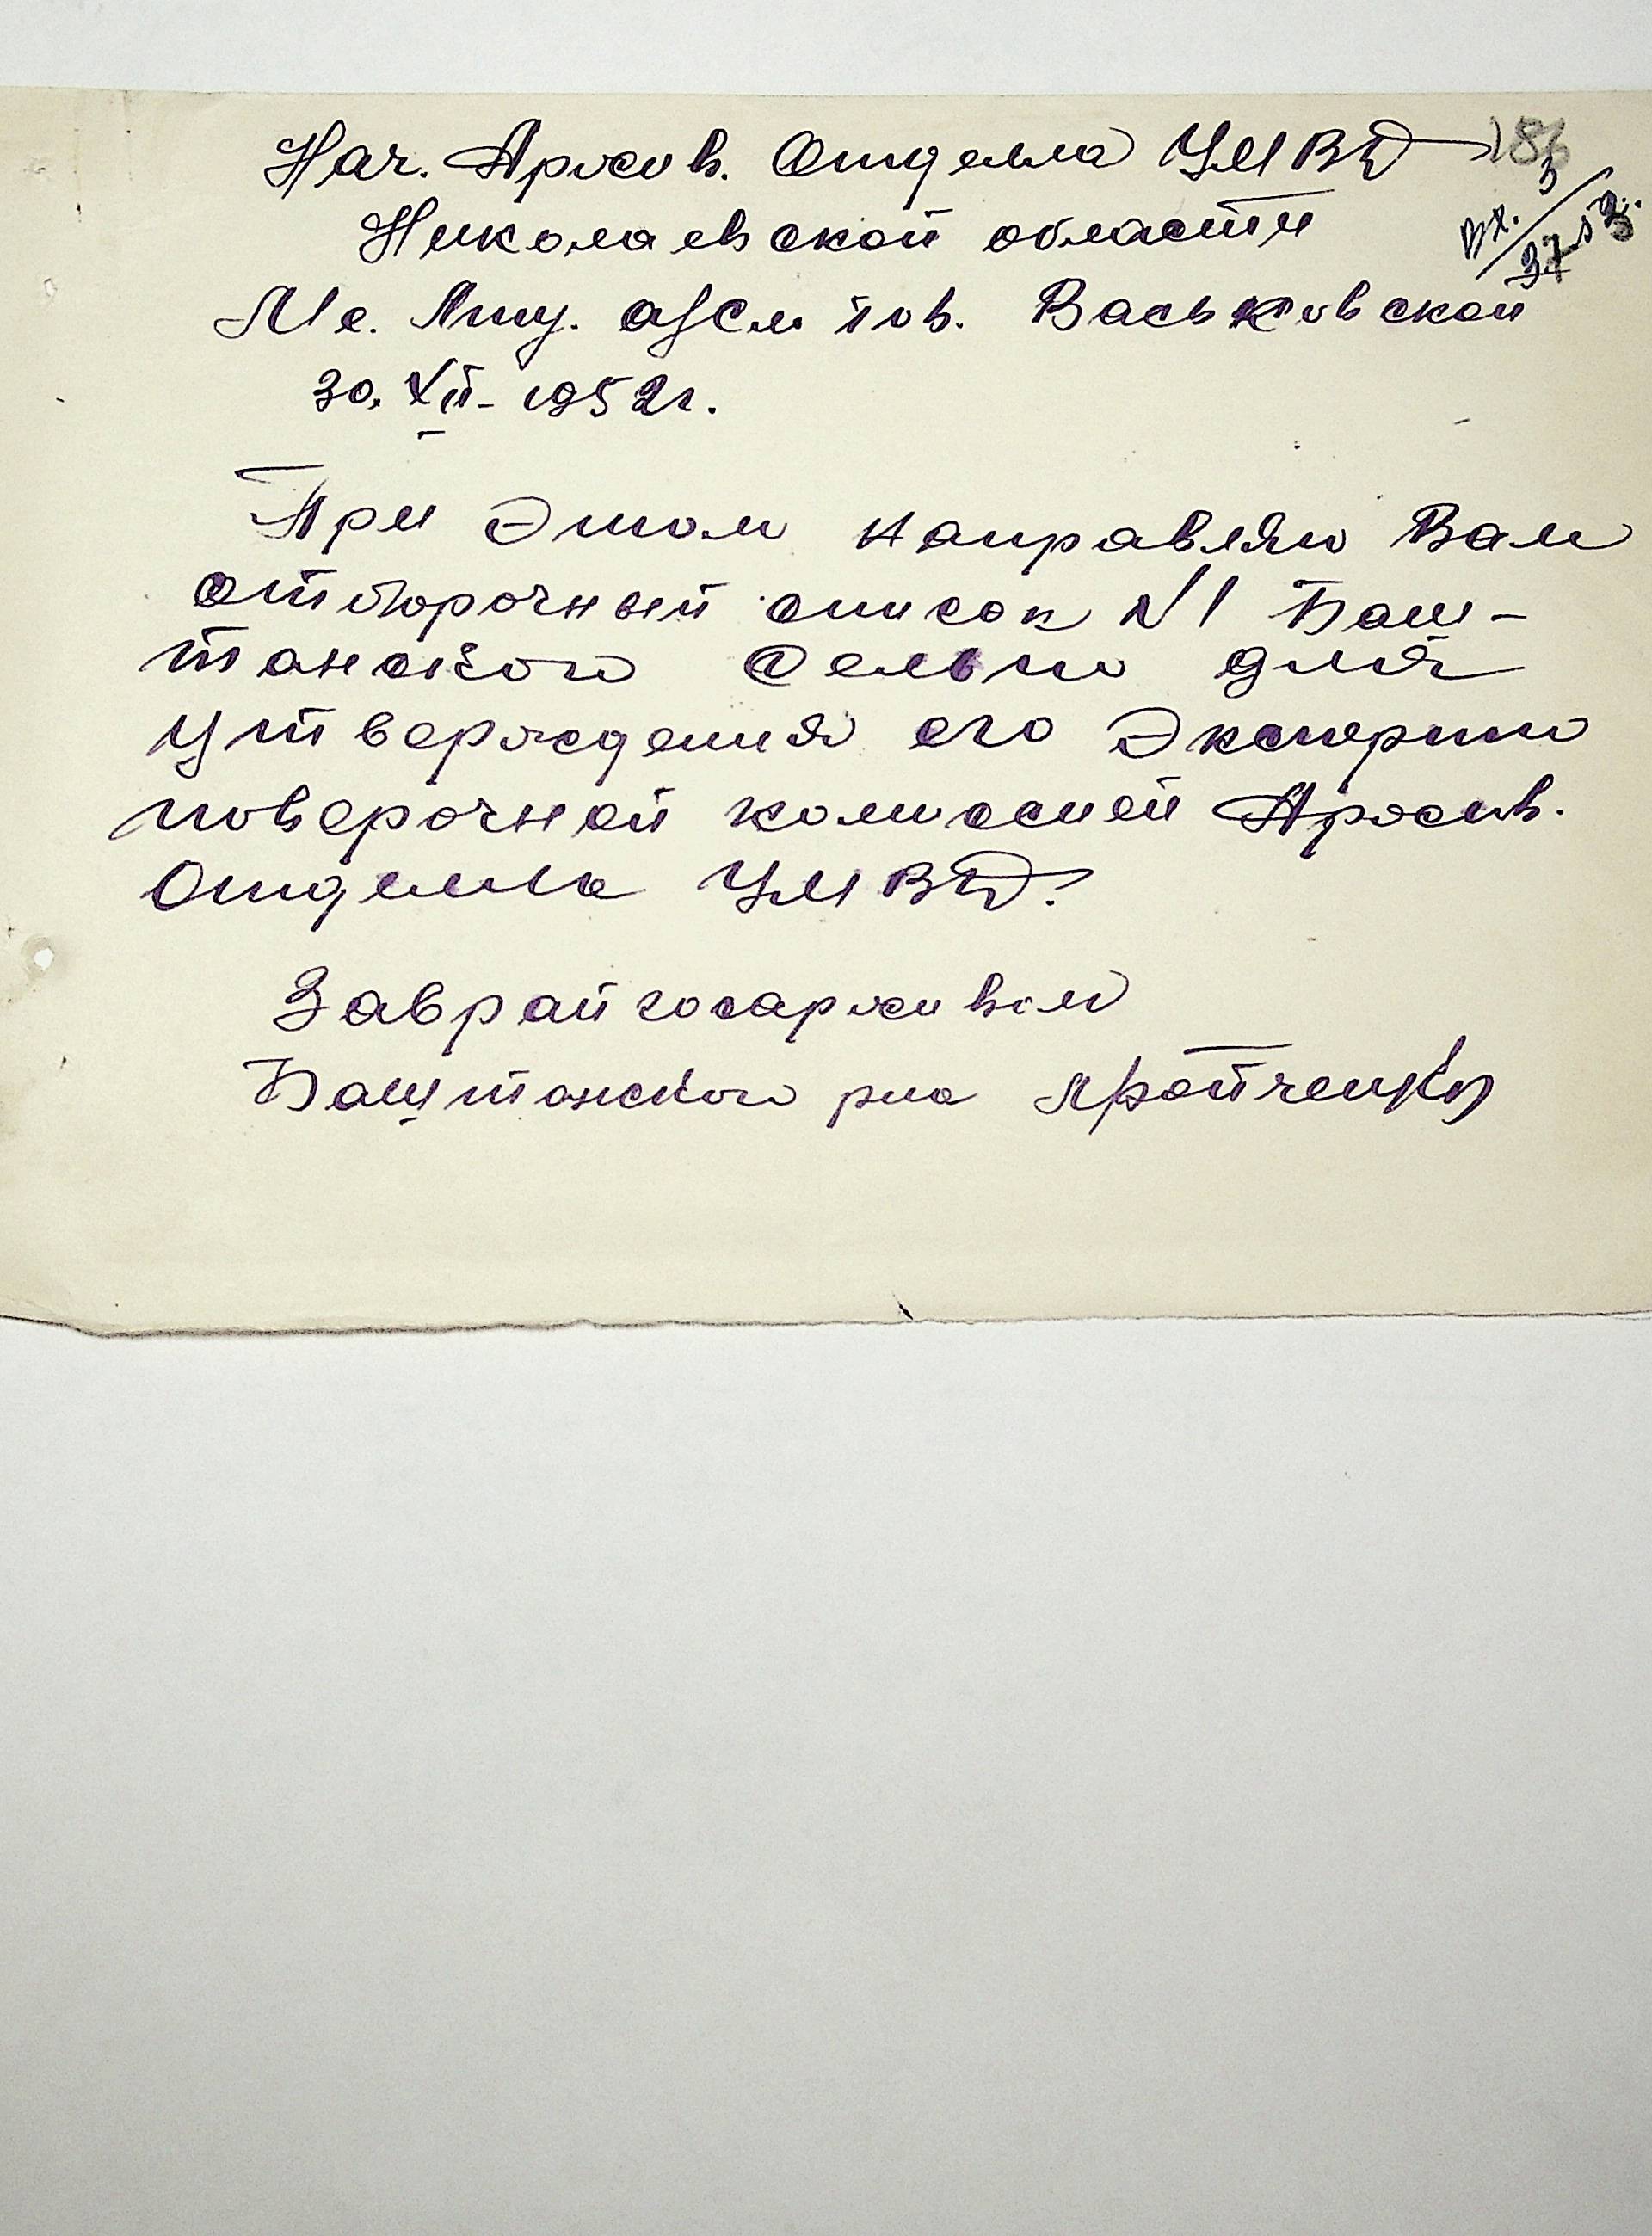 Нач. Архив. Отдела УМВД
Николаевской области
Мл. Лту. а/сл тов. Васьковской
30. XII - 1952 г.
вх. 3/37 53.
При этом направляю Вам
отборочный список №1 Баш-
танского Сельпо для
утверждения его Экспертно
поверочной комиссией Архив.
Отдела УМВД.
Заврайгосархивом
Баштанского р-на